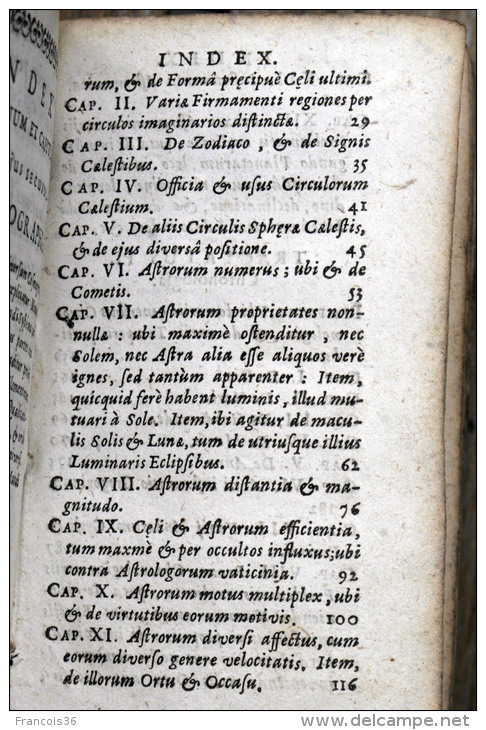 INDEX.
rum, & de Formâ pręcipuè Cęli ultimi.
CAP. II. Variæ Firmamenti regiones per
circulos imaginarios distinctæ. 29
CAP. III. De Zodiaco, & de Signis
Cælestibus. 35
CAP. IV. Officia & usus Circulorum
Cælestium. 41
CAP. V. De aliis Circulis Sphęræ Cælestis,
& de ejus diversâ positione. 45
CAP. VI. Astrorum numerus; ubi & de
Cometis. 53
CAP. VII. Astrorum proprietates non-
nullæ: ubi maximè ostenditur, nec
Solem, nec Astra alia esse aliquos verè
ignes, sed tantùm apparenter: Item,
quicquid ferè habent luminis, illud mu-
tuari à Sole. Item, ibi agitur de macu-
lis Solis & Lunæ, tum de utriusque illius
Luminaris Eclipsibus. 62
CAP. VIII. Astrorum distantia & ma-
gnitudo. 76
CAP. IX. Cęli & Astrorum efficientia,
tum maxmè & per occultos influxus; ubi
contra Astrologorum vaticinia. 92
CAP. X. Astrorum motus multiplex, ubi
& de virtutibus eorum motivis. 100
CAP. XI. Astrorum diversi affectus, cum
eorum diverso genere velocitatis. Item,
de illorum Ortu & Occasu. 116
Francois36
delcampe.net